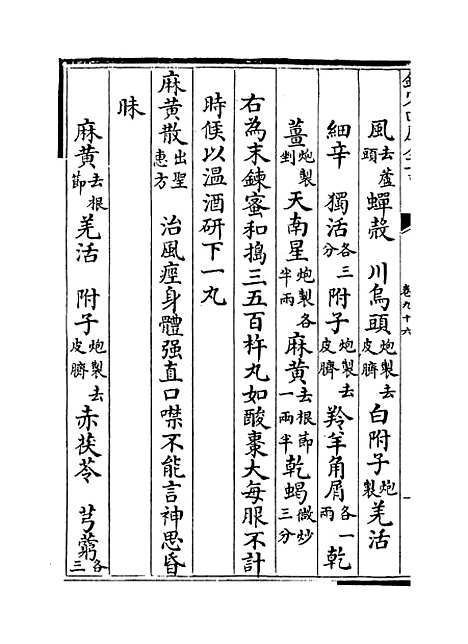 風去蘆頭蟬殼 川烏頭炮製去皮臍白附子炮製羌活
細辛 獨活各三分附子炮製去皮臍羚羊角屑各一兩乾
薑炮製剉天南星炮製各半兩麻黄去根節一兩半乾蝎微炒三分
右為末鍊蜜和搗三五百杵丸如酸棗大每服不計
時候以温酒研下一丸
麻黄散出聖惠方 治風痙身體强直口噤不能言神思昏
昧
麻黄去根節羌活 附子炮製去皮臍赤茯苓 芎藭各三
卷九十六